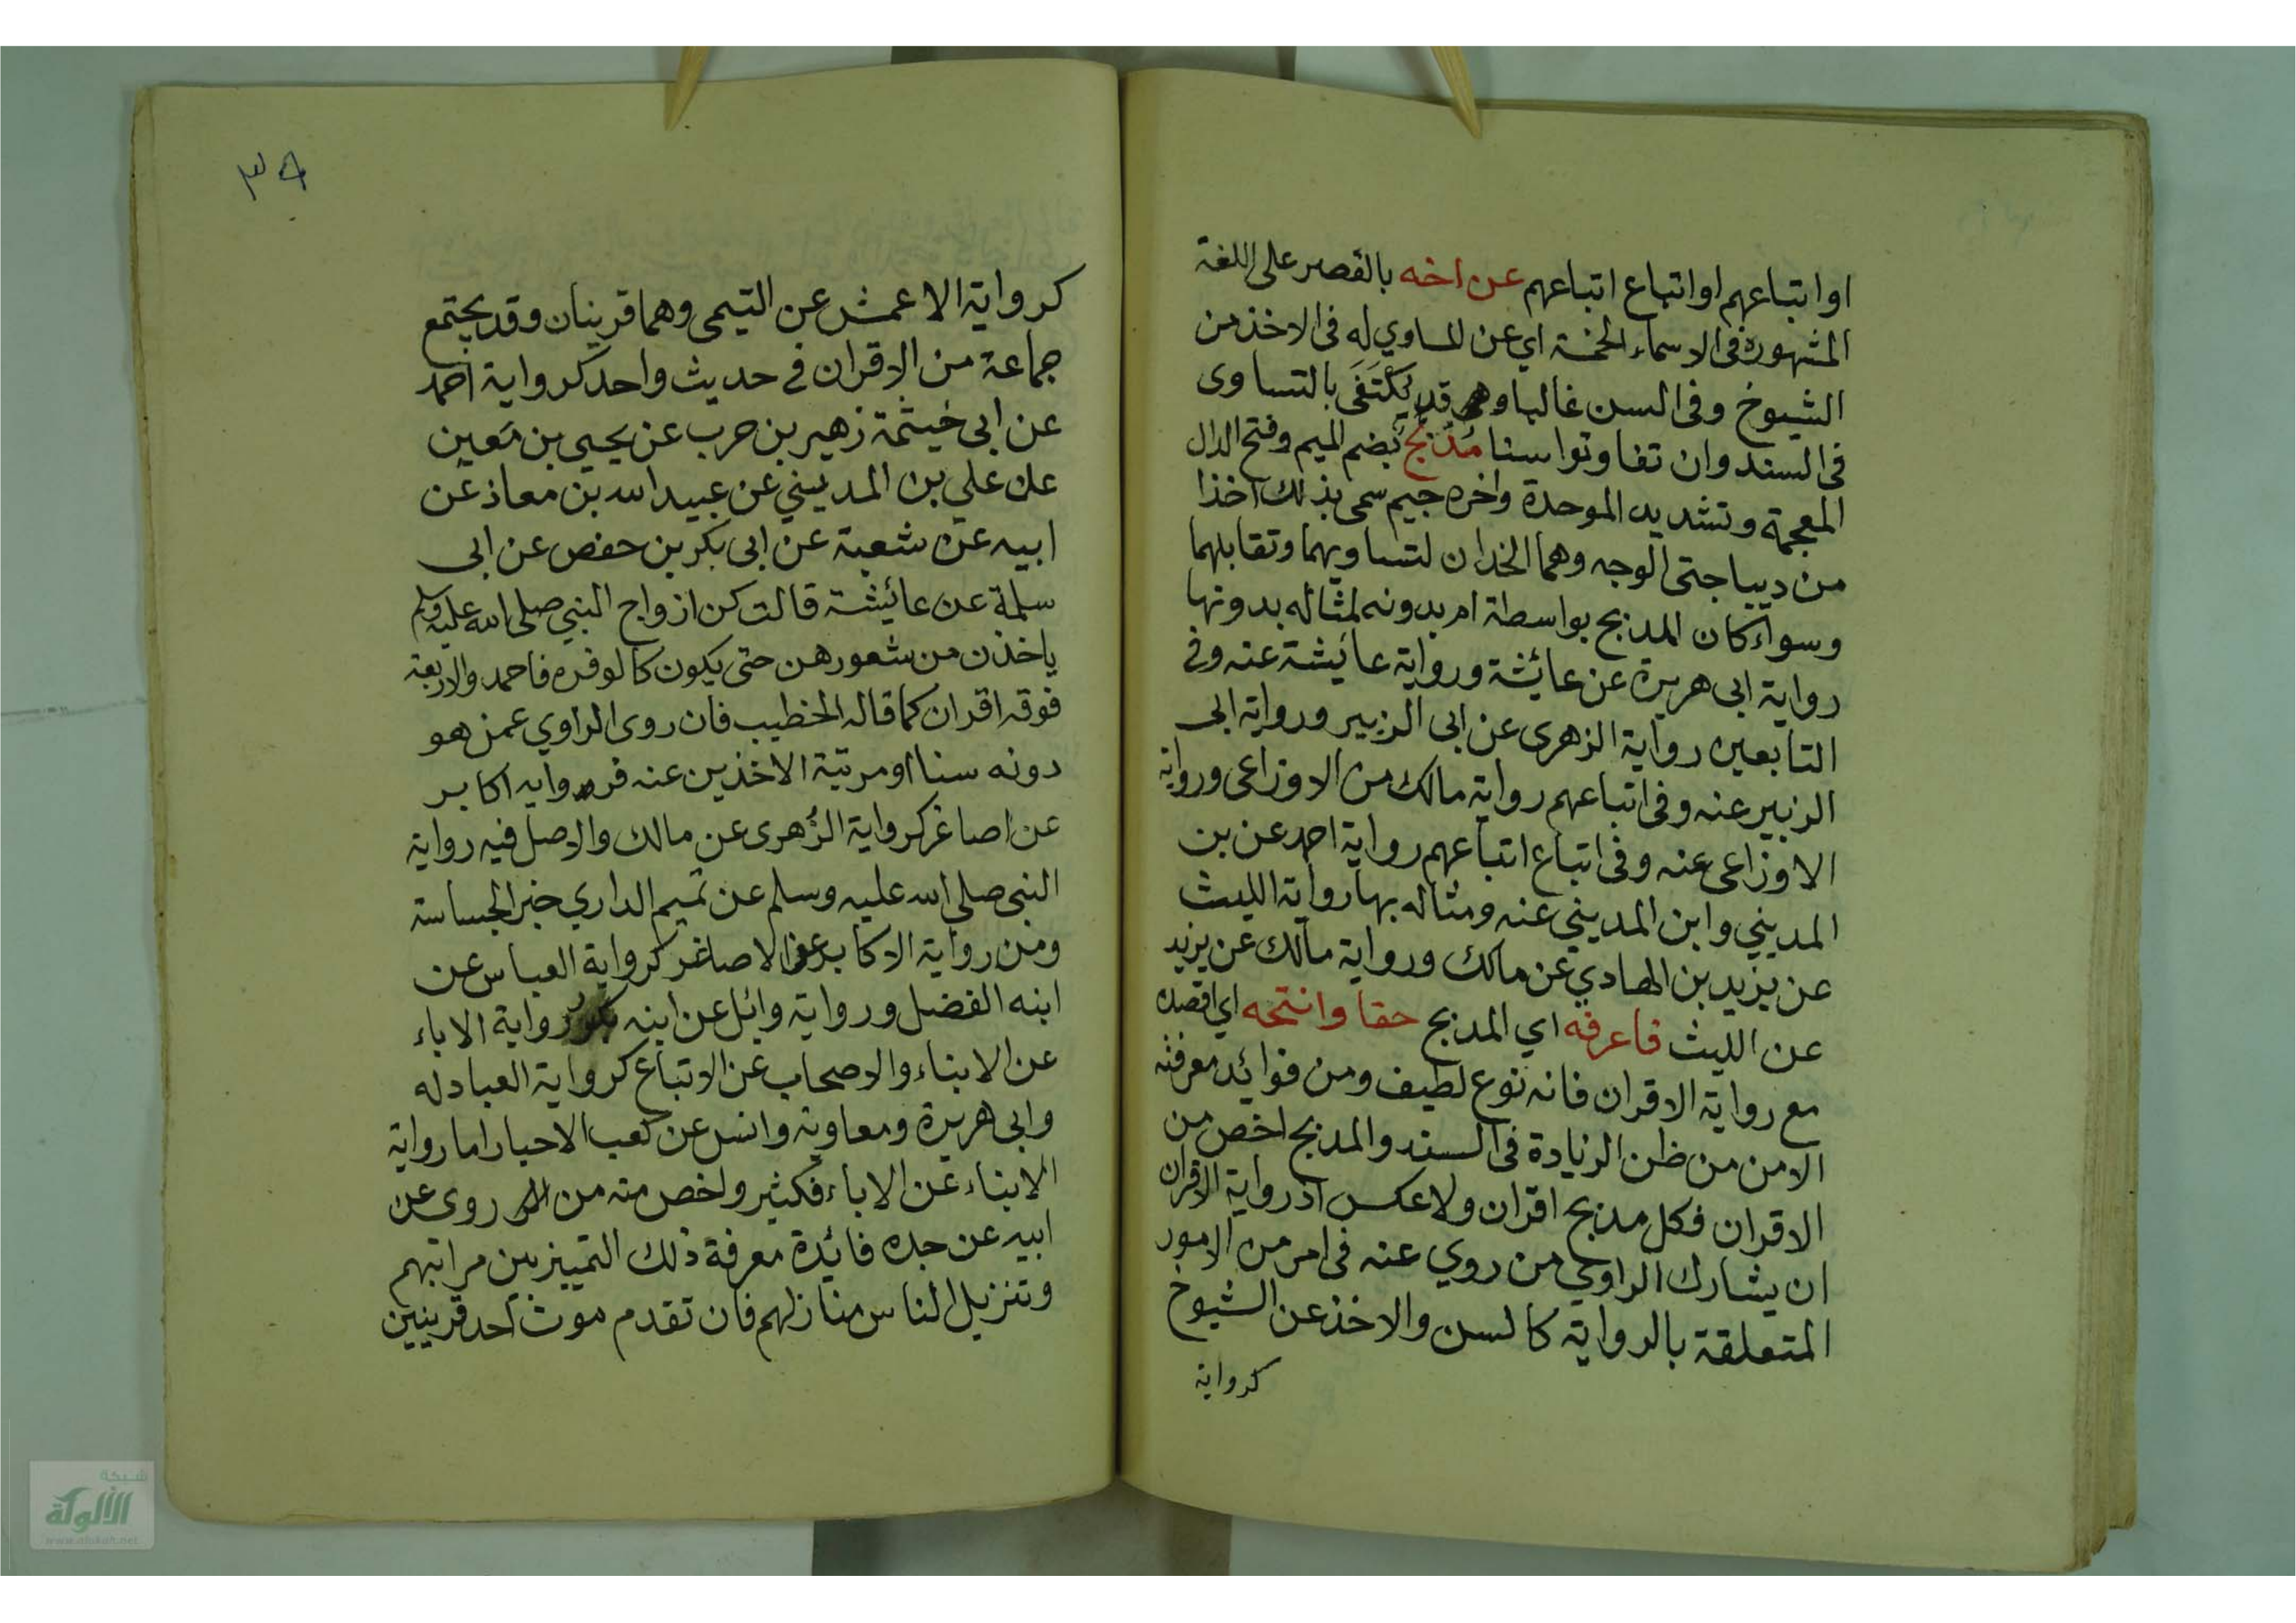 اواتباعهم اواتباع اتباعهم عن اخه بالقصر على اللغة
المشهورة في الاسماء الخمسة اي عن المساوي له في الاخذ من
الشيوخ وفي السن غالبا وقد يَكْتَفَى بالتساوى
في السند وان تفاوتوا سنا مُدَبَّج بضم الميم وفتح الدال
المعجمة وتشديد الموحدة واخره جيم سمى بذلك اخذا
من ديباجتى الوجه وهما الخدان لتساويهما وتقابلهما
وسواء كان المدبج بواسطة ام بدونه لمثاله بدونها
رواية ابى هريرة عن عائشة ورواية عائيشة عنه وفي
التابعين رواية الزهرى عن ابى الزبير ورواية ابى
الزبير عنه وفى اتباعهم رواية مالك من الاوزاعى ورواية
الاوزاعى عنه وفى اتباع اتباعهم رواية احمد عن بن
المديني وابن المديني عنه ومثاله بها رواية الليث
عن يزيد بن الهادي عن مالك ورواية مالك عن يزيد
عن الليث فاعرفه اي المدبج حقا وانتخه اي اقصده
مع رواية الاقران فانه نوع لطيف ومن فوائد معرفته
الامن من ظن الزيادة فى السند والمدبج اخص من
الاقران فكل مدبج اقران ولا عكس اذ رواية الاقران
ان يشارك الراوي من روي عنه فى امر من الامور
المتعلقة بالرواية كالسن والاخذ عن الشيوخ
كرواية
٣٩
كرواية الاعمش عن التيمى وهما قرينان وقد يجتمع
جماعة من الاقران في حديث واحد كرواية احمد
عن ابى خيثمة زهير بن حرب عن يحيى بن معين
عن علي بن المديني عن عبيد الله بن معاذ عن
ابيه عن شعبة عن ابى بكر بن حفص عن ابى
سلمة عن عائيشة قالت كن ازواج النبي صلى الله عليه وسلم
ياخذن من شعورهن حتى يكون كالوفره فاحمد والاربعة
فوقه اقران كما قاله الخطيب فان روى الراوي عمن هو
دونه سنا او مرتبة الاخذين عنه فروايه اكابر
عن اصاغر كرواية الزُهرى عن مالك والاصل فيه رواية
النبي صلى الله عليه وسلم عن تميم الداري خبر الجساسة
ومن رواية الاكابر عن الاصاغر كرواية العباس عن
ابنه الفضل ورواية وائل عن ابنه بكر رواية الاباء
عن الابناء والاصحاب عن الاتباع كرواية العبادله
وابى هريرة ومعاوية وانس عن كعب الاحبار اما رواية
الابناء عن الاباء فكثير واخص منه من روى عن
ابيه عن جده فائدة معرفة ذلك التمييز بين مراتبهم
وتنزيل الناس منازلهم فان تقدم موت احد قرينين
شبكة
الألوكة
www.alukah.net